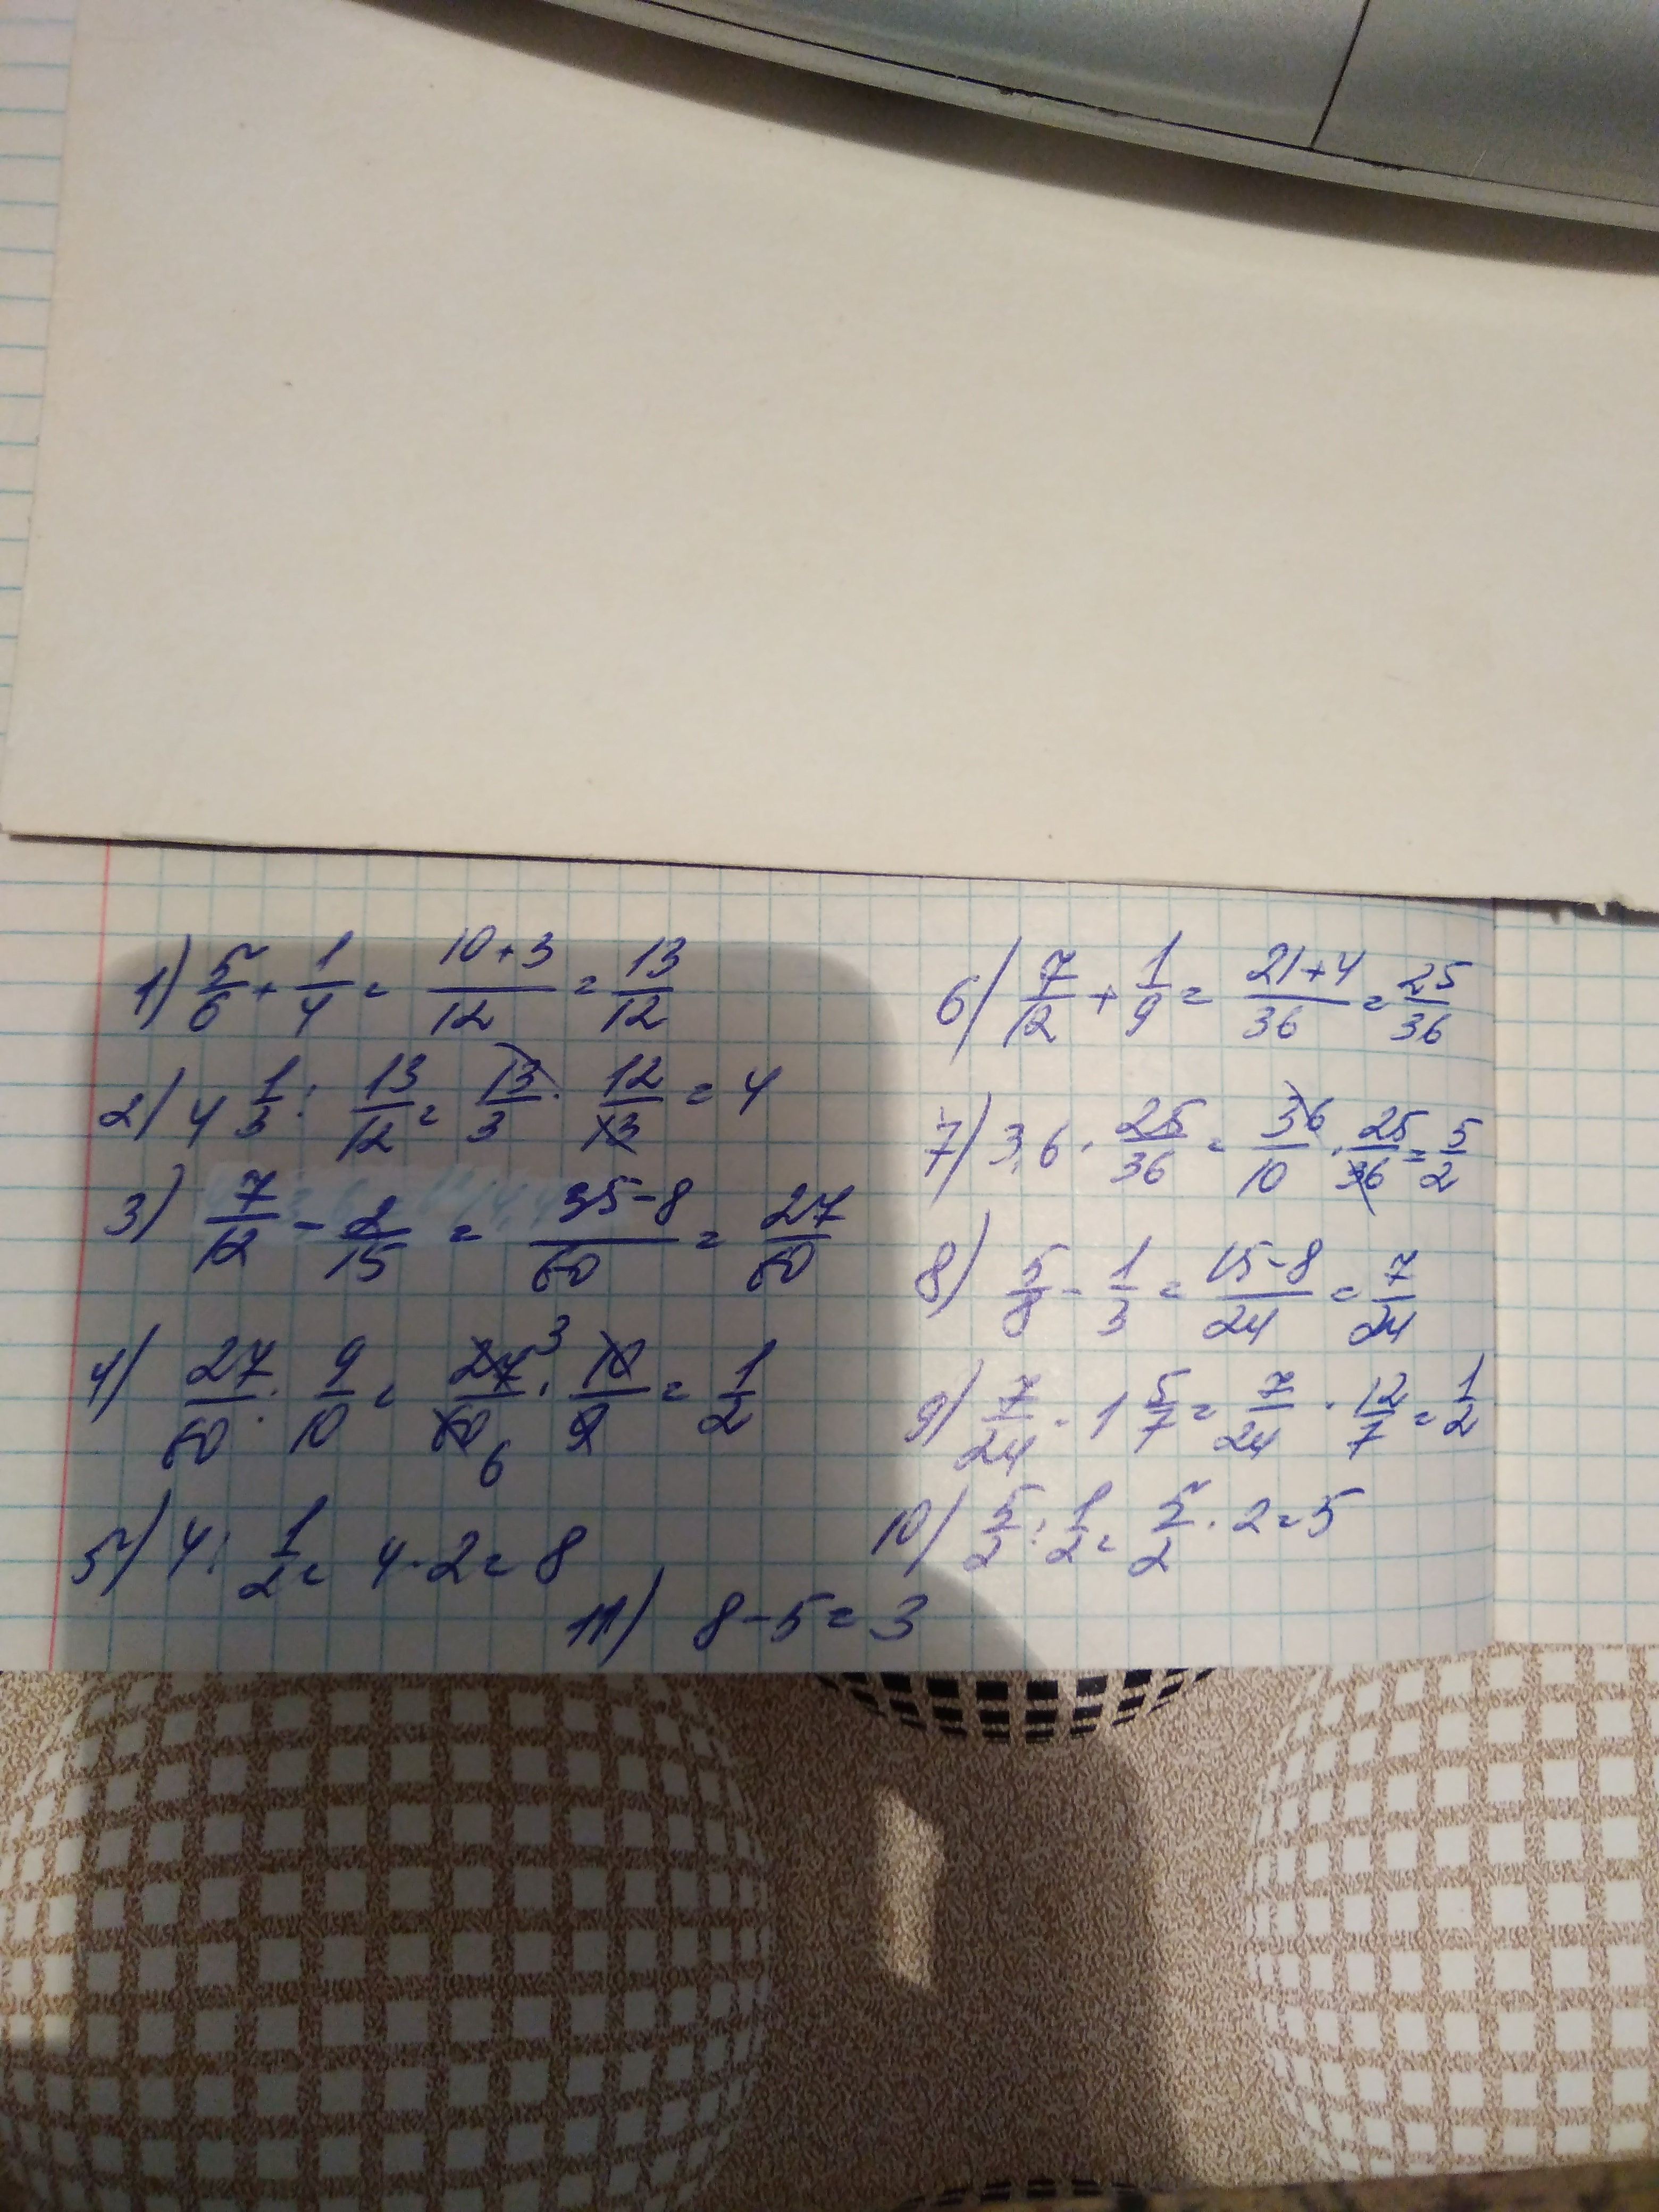 1) 5/6 + 1/4 = (10+3)/12 = 13/12
2) 4 1/3 : 13/12 = 13/3 · 12/13 = 4
3) 7/12 - 2/15 = (35-8)/60 = 27/60
4) 27/60 : 9/10 = 27/60 3 6 · 10/9 = 1/2
5) 4 : 1/2 = 4 · 2 = 8
6) 7/12 + 1/9 = (21+4)/36 = 25/36
7) 3,6 · 25/36 = 36/10 · 25/36 = 5/2
8) 5/8 - 1/3 = (15-8)/24 = 7/24
9) 7/24 · 1 5/7 = 7/24 · 12/7 = 1/2
10) 5/2 : 1/2 = 5/2 · 2 = 5
11) 8-5 = 3